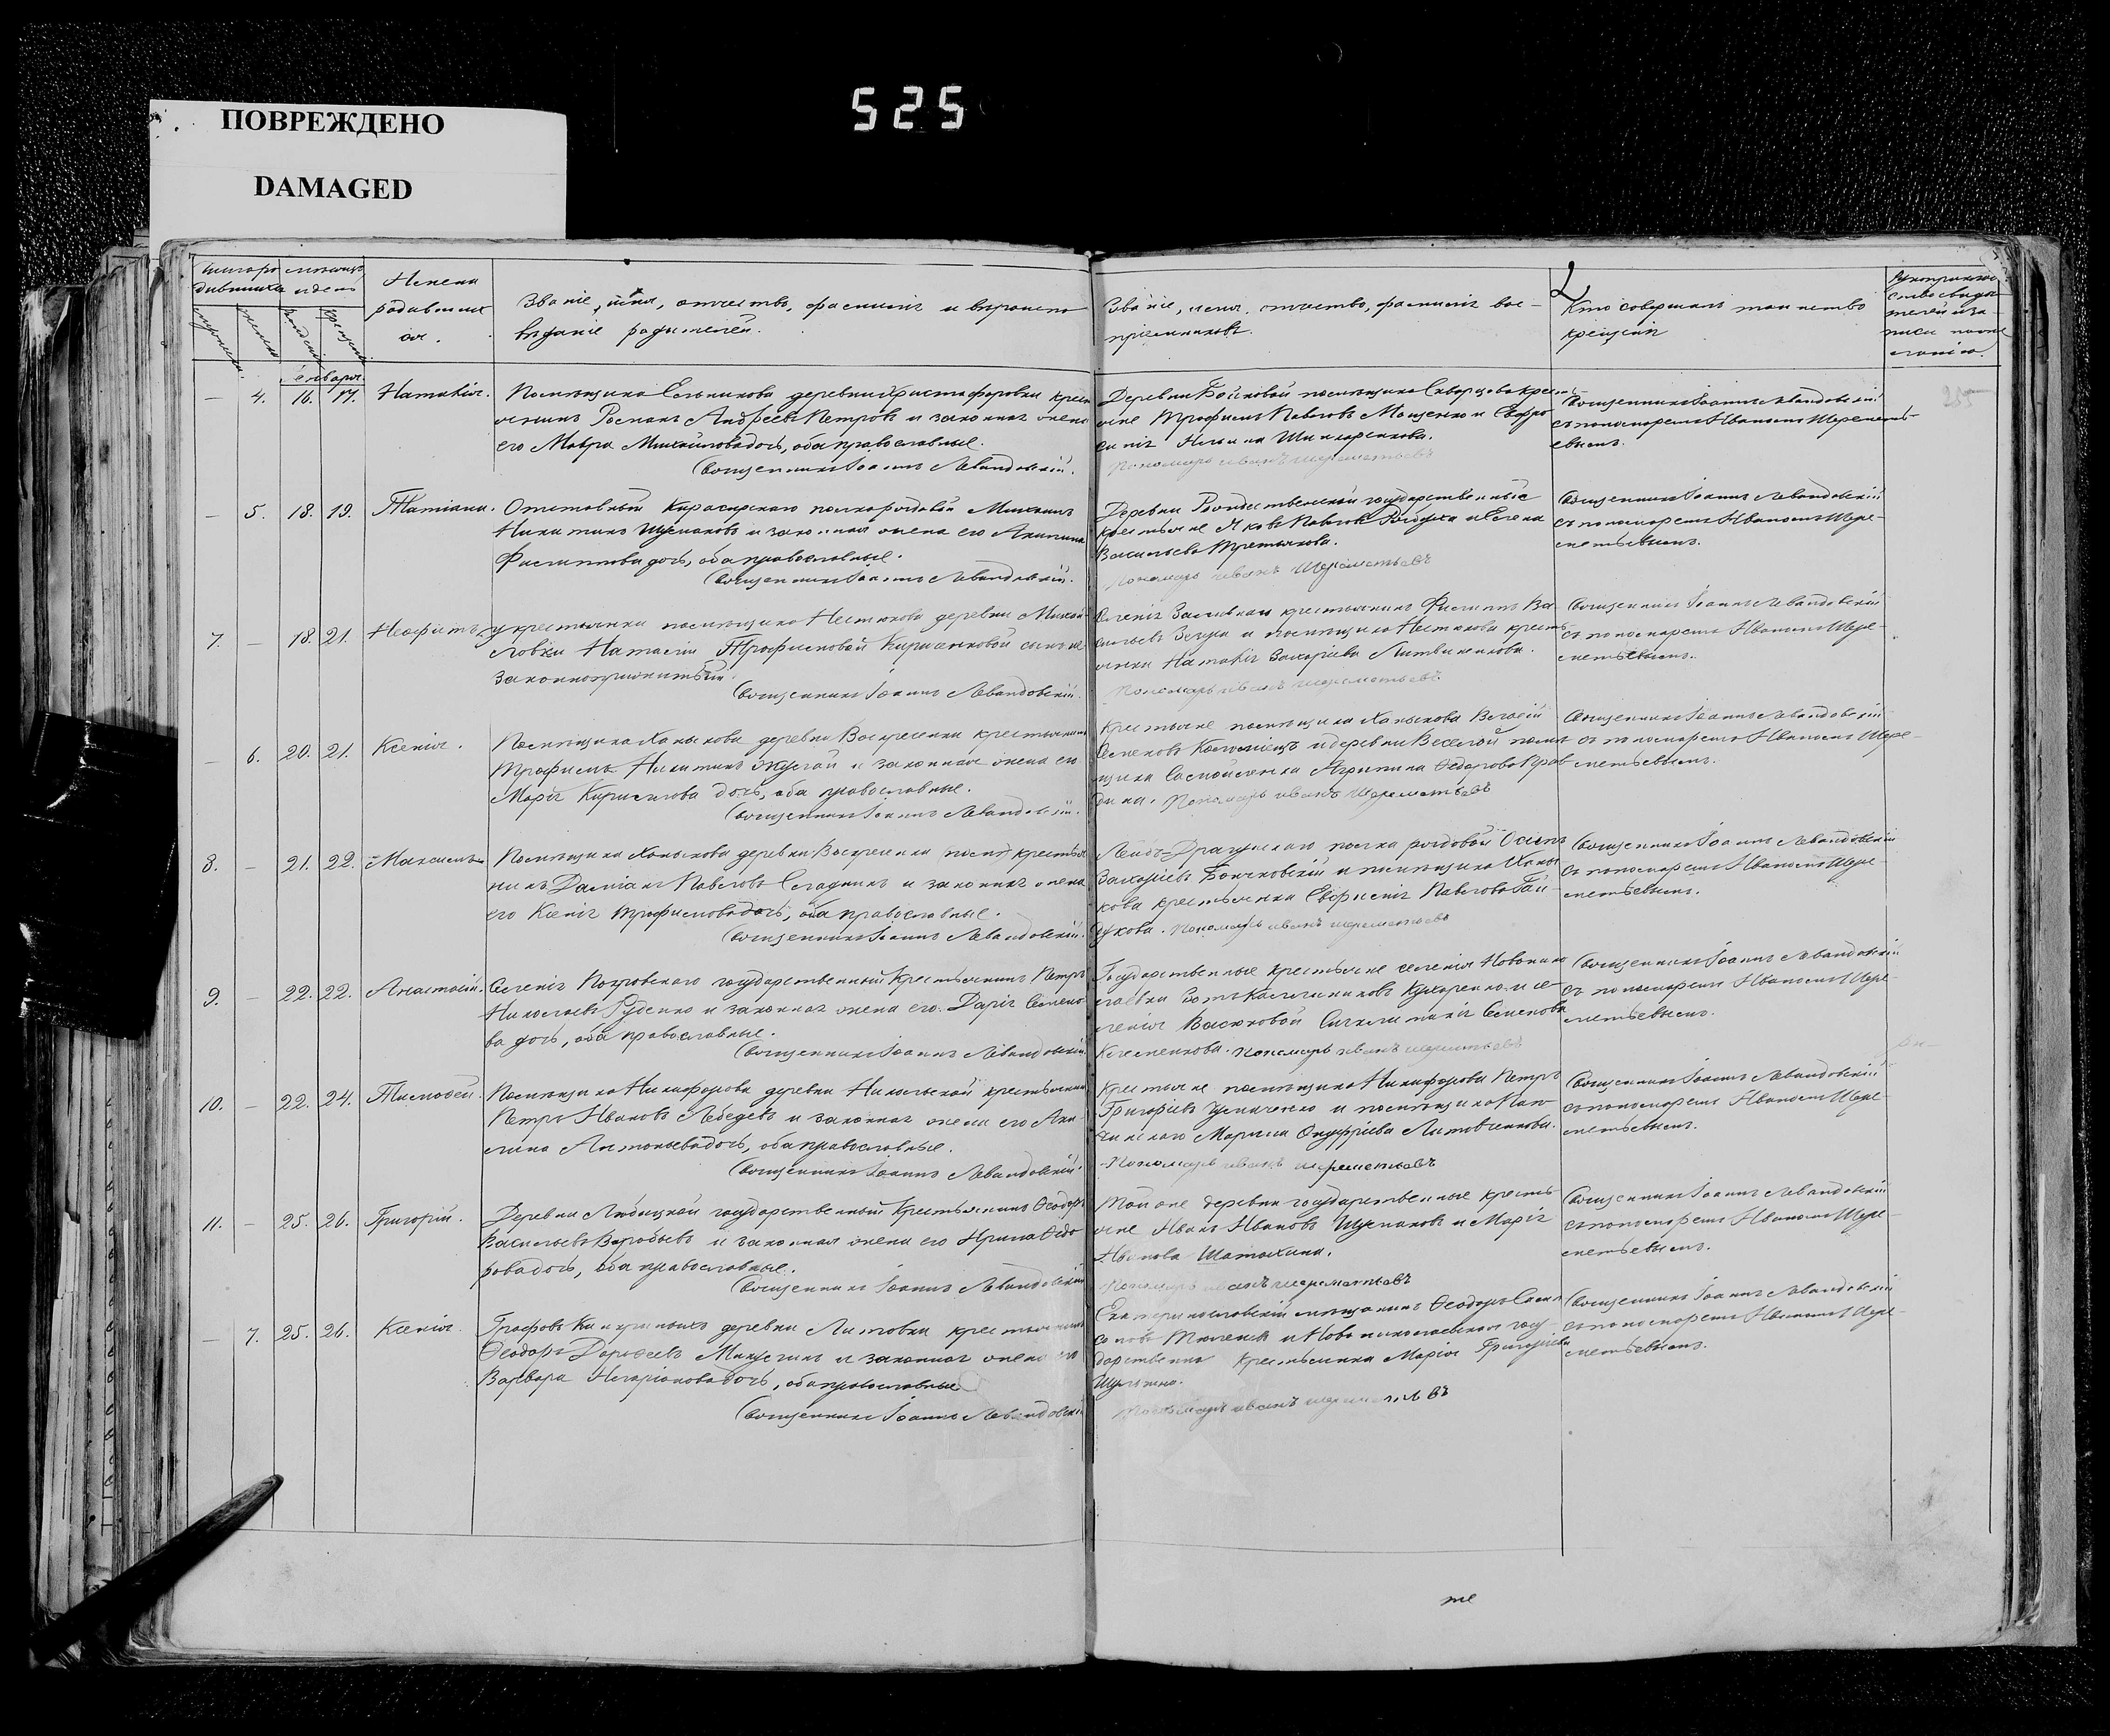 ПОВРЕЖДЕНО
DAMAGED
525
Имена
родивших
ся.
Званіе, имя, отчество, фамилія и вероиспо
веданіе родителей.
Званіе, имя, отчество, фамилія вос-
пріемниковъ.
Кто совершалъ таинство
крещенія
января
— 4. 16. 17. Наталія.
Помѣщика деревни Христофоровки крест
янинъ Романъ Андреевъ Петровъ и законная жена
его Мавра Михайлова дочь, оба православные.
Священникъ Іоаннъ Левандовскій.
Деревни Бойковой помѣщика Скворцова крестья
не Трофимъ Павловъ Мащенко и Евфро
синія Ильина
Пономарь иванъ шереметьевъ
Священникъ Іоаннъ Левандовскій
съ пономаремъ Иваномъ Шеремет-
евымъ.
— 5. 18. 19. Татіана.
Отставный Кирасирскаго полка рядовой Михаилъ
Никитинъ Шумаковъ и законная жена его Акилина
Филиппова дочь, оба православные.
Священникъ Іоаннъ Левандовскій.
Деревни Рождественской государственные
крестьяне Яковъ Павловъ и Елена
Васильева Третьякова.
Пономарь иванъ Шереметьевъ
Священникъ Іоаннъ Левандовскій
съ пономаремъ Иваномъ Шере-
метьевымъ.
7. — 18. 21. Неофитъ,
у крестьянки помѣщика деревни Михай
ловки Наталіи Трофимовой сынъ не
законноприжитый
Священникъ Іоаннъ Левандовскій.
Селенія крестьянинъ Филиппъ Ва
сильевъ и помѣщика крестъ
янка Наталія Захаріева Литвиненкова.
Пономарь иванъ шереметьевъ
Священникъ Іоаннъ Левандовскій
съ пономаремъ Иваномъ Шере-
метьевымъ.
— 6. 20. 21. Ксенія.
Помѣщика Ханыкова деревни Воскресенки крестьянинъ
Трофимъ Никитинъ и законная жена его
Марія Кирилова дочь, оба православные.
Священникъ Іоаннъ Левандовскій.
Крестьяне помѣщика Ханыкова
Семеновъ и деревни Веселой помѣ
щика Самойленка Агрипина Ѳедорова
дина. Пономарь иванъ Шереметьевъ
Священникъ Іоаннъ Левандовскій
съ пономаремъ Иваномъ Шере-
метьевымъ.
8. — 21. 22. Максимъ
Помѣщика Ханыкова деревни Воскресенки крестья
нинъ Даміанъ Павловъ и законная жена
его Ксенія Трофимова дочь, оба православные.
Священникъ Іоаннъ Левандовскій.
Лейбъ-Драгунскаго полка рядовой Осипъ
Захаріевъ и помѣщика Ханы
кова крестьянка Евфимія Павлова Гай
дукова. Пономарь иванъ шереметьевъ
Священникъ Іоаннъ Левандовскій
съ пономаремъ Иваномъ Шере-
метьевымъ.
9. — 22. 22. Анастасій.
Селенія Покровскаго государственный крестьянинъ Петръ
Николаевъ Руденко и законная жена его Дарія Семено
ва дочь, оба православные.
Священникъ Іоаннъ Левандовскій
Государственные крестьяне селенія Новонико
лаевки Кухаренко и се
ленія Васюковой Семенова
Пономарь иванъ шереметьевъ
Священникъ Іоаннъ Левандовскій
съ пономаремъ Иваномъ Шере-
метьевымъ.
10. — 22. 24. Тимофей.
Помѣщика Никифорова деревни Никольской крестьянинъ
Петръ Ивановъ Лебедевъ и законная жена его Аки
лина Антоньева дочь, оба православные.
Священникъ Іоаннъ Левандовскій.
Крестьяне помѣщика Никифорова Петръ
Григоріевъ и помѣщика
Онуфріева Литовченкова.
Пономарь иванъ шереметьевъ
Священникъ Іоаннъ Левандовскій
съ пономаремъ Иваномъ Шере-
метьевымъ.
11. — 25. 26. Григорій.
Деревни Любицкой государственный крестьянинъ Ѳеодоръ
Васильевъ Воробьевъ и законная жена его Ирина Ѳедо
рова дочь, оба православные.
Священникъ Іоаннъ Левандовскій
Той же деревни государственные кресть
яне Иванъ Ивановъ Шумаковъ и Марія
Иванова Шатохина.
Пономарь иванъ шереметьевъ
Священникъ Іоаннъ Левандовскій
съ пономаремъ Иваномъ Шере-
метьевымъ.
— 7. 25. 26. Ксенія.
Графовъ деревни Литовки крестьянинъ
Ѳеодоръ Дороѳеевъ и законная жена его
Варвара Иларіонова дочь, оба православные
Священникъ Іоаннъ Левандовскій
Екатеринославскій мѣщанинъ Ѳеодоръ
и Новониколаевская госу-
дарственная крестьянка Марія Григоріева
Пономарь иванъ шереметьевъ
Священникъ Іоаннъ Левандовскій
съ пономаремъ Иваномъ Шере-
метьевымъ.